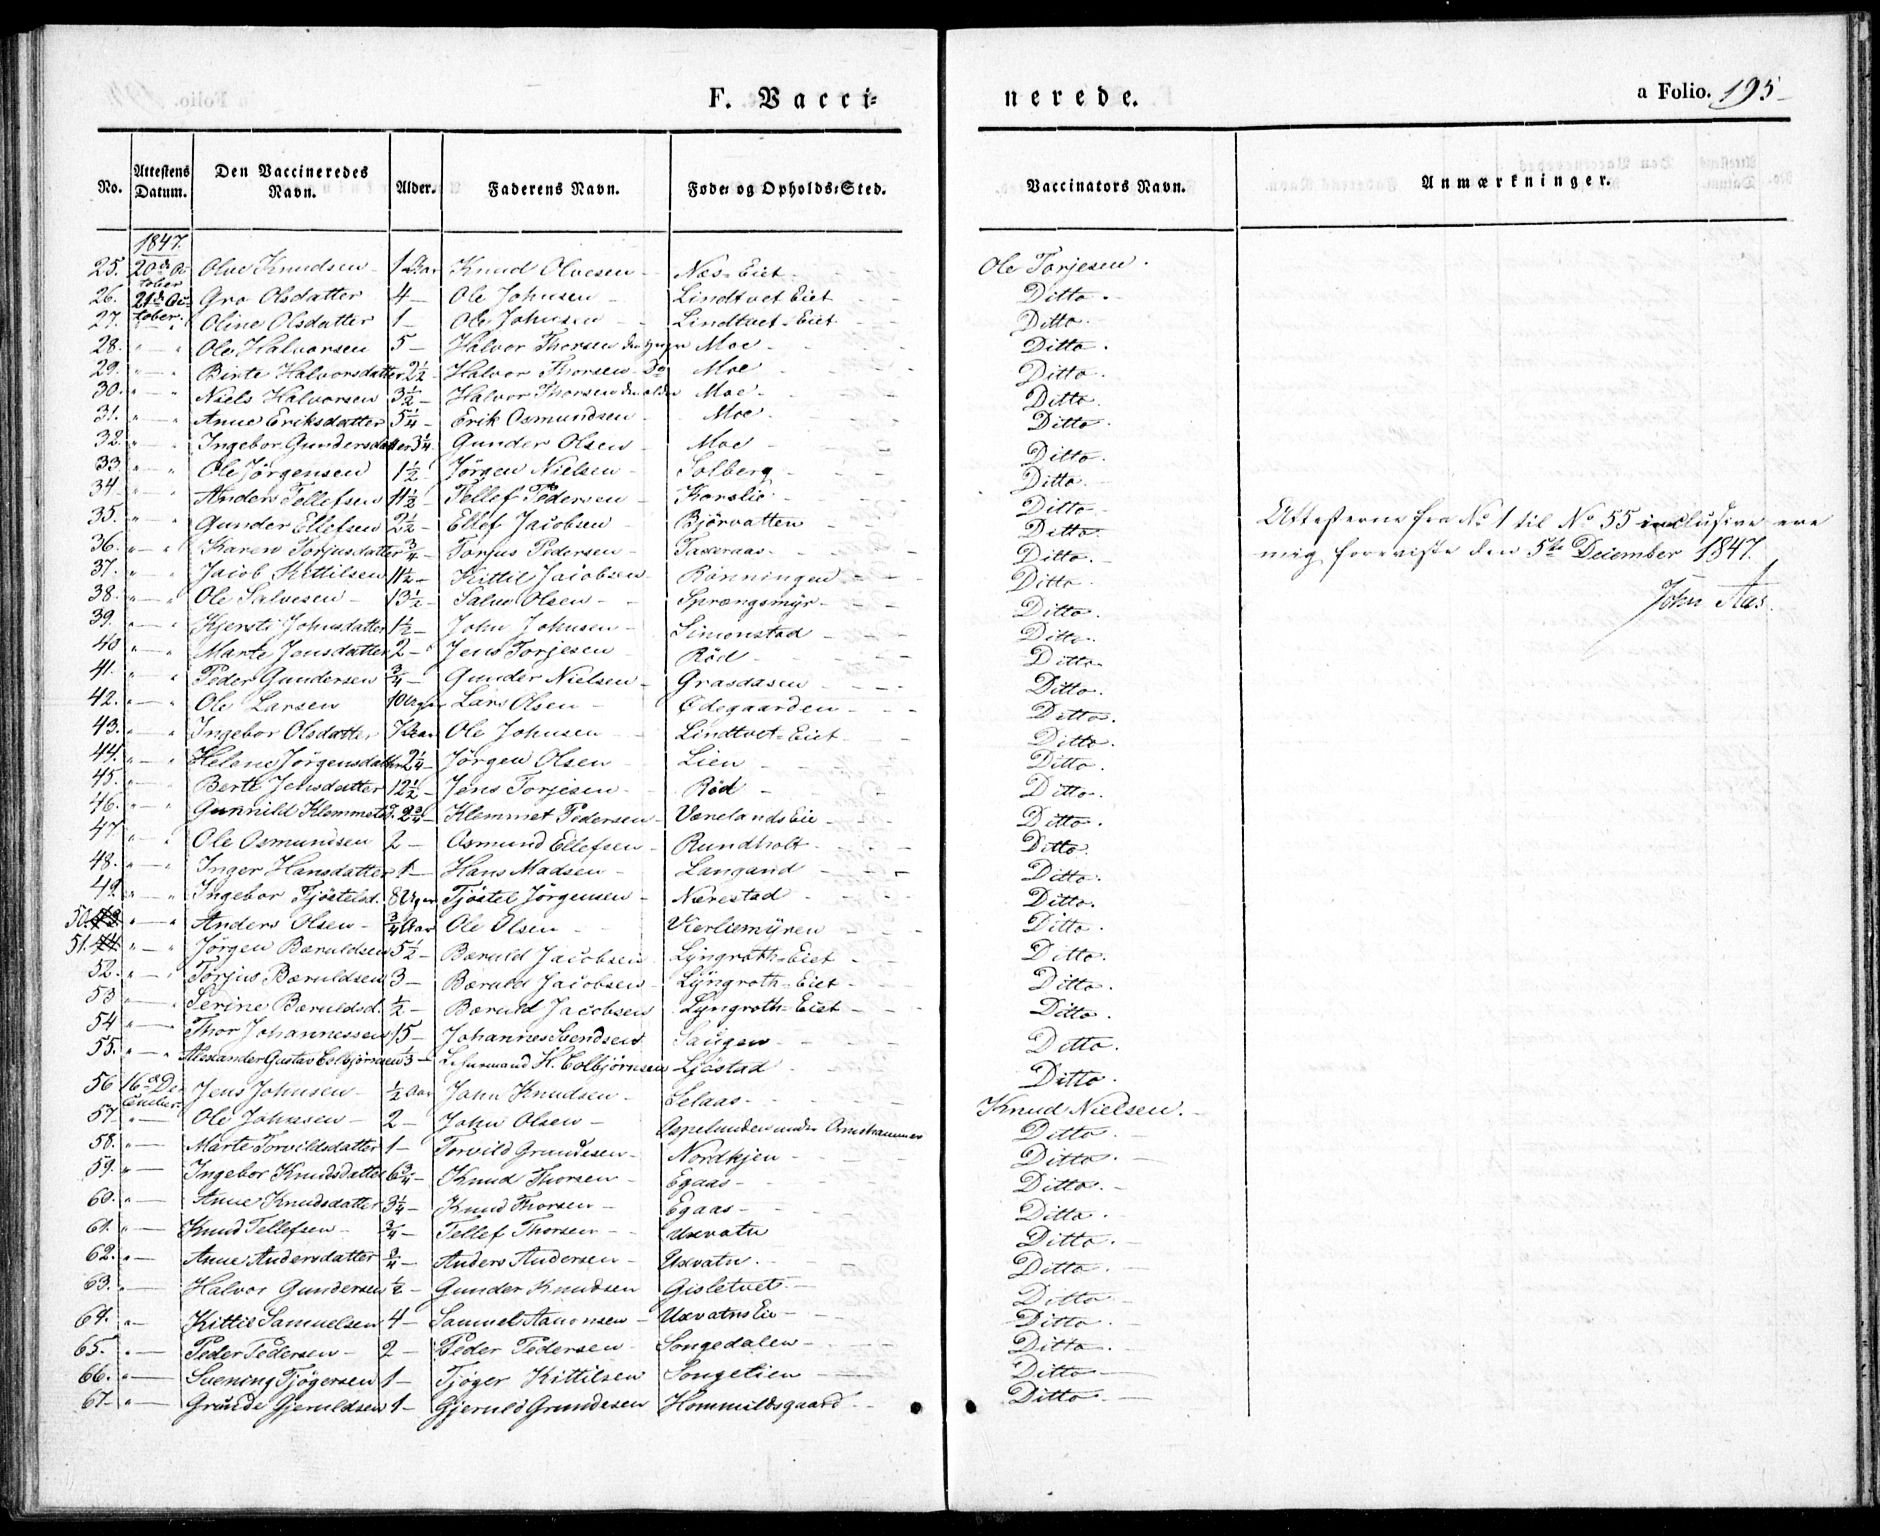 F. Vacci=
nerede.
a Folio. 195
No. Attestens Datum. Den Vaccineredes Navn. Alder. Faderens Navn. Føde= og Opholds=Sted. Vaccinators Navn. Anmærkninger.
1847.
25. 20de Oc tober Olve Knudsen 1 Aar Knud Olvesen Næs=Eiet Ole Torjesen.
26. 21de Oc tober. Gro Olsdatter 4 — Ole Johnsen Lindtvet Eiet Ditto.
27. Oline Olsdatter 1 — Ole Johnsen Lindtvet=Eiet Ditto.
28. " — " Ole Halvorsen 5 — Halvor Thorsen den yngre Moe Ditto.
29. " — " Birte Halvorsdatter 2½ — Halvor Thorsen Do Moe Ditto.
30. " — " Niels Halvorsen 3½ — Halvor Thorsen den ældre Moe Ditto.
31. " — " Anne Eriksdatter 5¼ — Erik Osmundsen Moe Ditto.
32. " — " Ingebor Gundersdatter 3¼ Gunder Olsen Moe Ditto.
33. " — " Ole Jørgensen 1½ Jørgen Nielsen Solberg Ditto.
34. " — " Anders Tellefsen 11½ Tellef Pedersen Korslie Ditto.
35. " — " Gunder Ellefsen 2½ — Ellef Jacobsen Bjørvatten Ditto.
36. " — " Karen Torjusdatter ¾ — Torjus Pedersen Taxeraas Ditto.
37. " — " Jacob Kittilsen 11½ — Kittil Jacobsen Rønningen Ditto.
38. " — " Ole Salvesen 13½ — Salve Olsen Sprængsmyr Ditto.
39. " — " Kjersti Johnsdatter 1½ — John Johnsen Simonstad Ditto.
40. " — " Marte Jensdatter 2 — Jens Torjesen Röd Ditto.
41. " — " Peder Gundersen ¾ — Gunder Nielsen Grasaasen Ditto.
42. " — " Ole Larsen 10 Uger Lars Olsen Ødegaarden Ditto.
43. " — " Ingebor Olsdatter 7 Aar Ole Johnsen Lindtvet=Eiet Ditto.
44. " — " Helene Jørgensdatter 2¼ — Jørgen Olsen Lien Ditto.
45. " — " Berte Jensdatter 12½ — Jens Torjesen Röd Ditto.
46. " — " Gunnild Klemmetsd. 2¾ — Klemmet Pedersen Vænelands Eie Ditto.
47. " — " Ole Osmundsen 2 — Osmund Ellefsen Rundholt Ditto.
48. " — " Inger Hansdatter 1 — Hans Madsen Langand Ditto.
49. " — " Ingebor Tjøstelsd. 8 Uger Tjøstel Jørgensen Nærestad Ditto.
50. " — " Anders Olsen ¾ Aar Ole Olsen Vierliemÿren Ditto.
51. " — " Jørgen Bæruldsen 5½ — Bæruld Jacobsen Lÿngroth=Eiet Ditto.
52. " — " Torjus Bæruldsen 3 — Bæruld Jacobsen Lÿngroth=Eiet Ditto.
53 " — " Serine Bæruldsd. ½ — Bæruld Jacobsen Lyngroth=Eiet Ditto.
54 " — Thor Johannessen 15 — Johannes Svendsen Saugen Ditto.
55. " — " Alexander Gustav Esbjørnsen 3 — H. Esbjørnsen Ljøstad Ditto.
56 16de De cember. Jens Johnsen ½ Aar John Knudsen Selaas Knud Nielsen.
57. " — Ole Johnsen 2 — John Olsen under Ditto.
58. " — Marte Torvildsdatter 1 — Torvild Grundesen Nordkjen Ditto.
59. " — Ingebor Knudsdatter 6¾ — Knud Thorsen Egaas Ditto.
60. " — Anne Knudsdatter 3¼ — Knud Thorsen Egaas Ditto.
61. " — Knud Tellefsen ¾ — Tellef Thorsen Uxvatn Ditto.
62. " — Anne Andersdatter ¾ — Anders Andersen Uxvatn Ditto.
63. " — Halvor Gundersen ½ — Gunder Knudsen Gisletvet Ditto.
64. " — Kittil Samuelsen 4 — Samuel Aanonsen Uxvatns Eie Ditto.
65. " — Peder Pedersen 2 — Peder Pedersen Songedalen Ditto.
66. " — Svening Tjøgersen 1 — Tjøger Kittilsen Songelien Ditto.
67. " — Grunde Gjeruldsen 1 — Gjeruld Grundesen Hommeldsgaard Ditto.
Attesterne fra No 1 til No 55 inclusive ere
mig foreviste den 5te December 1847.
John Aas.